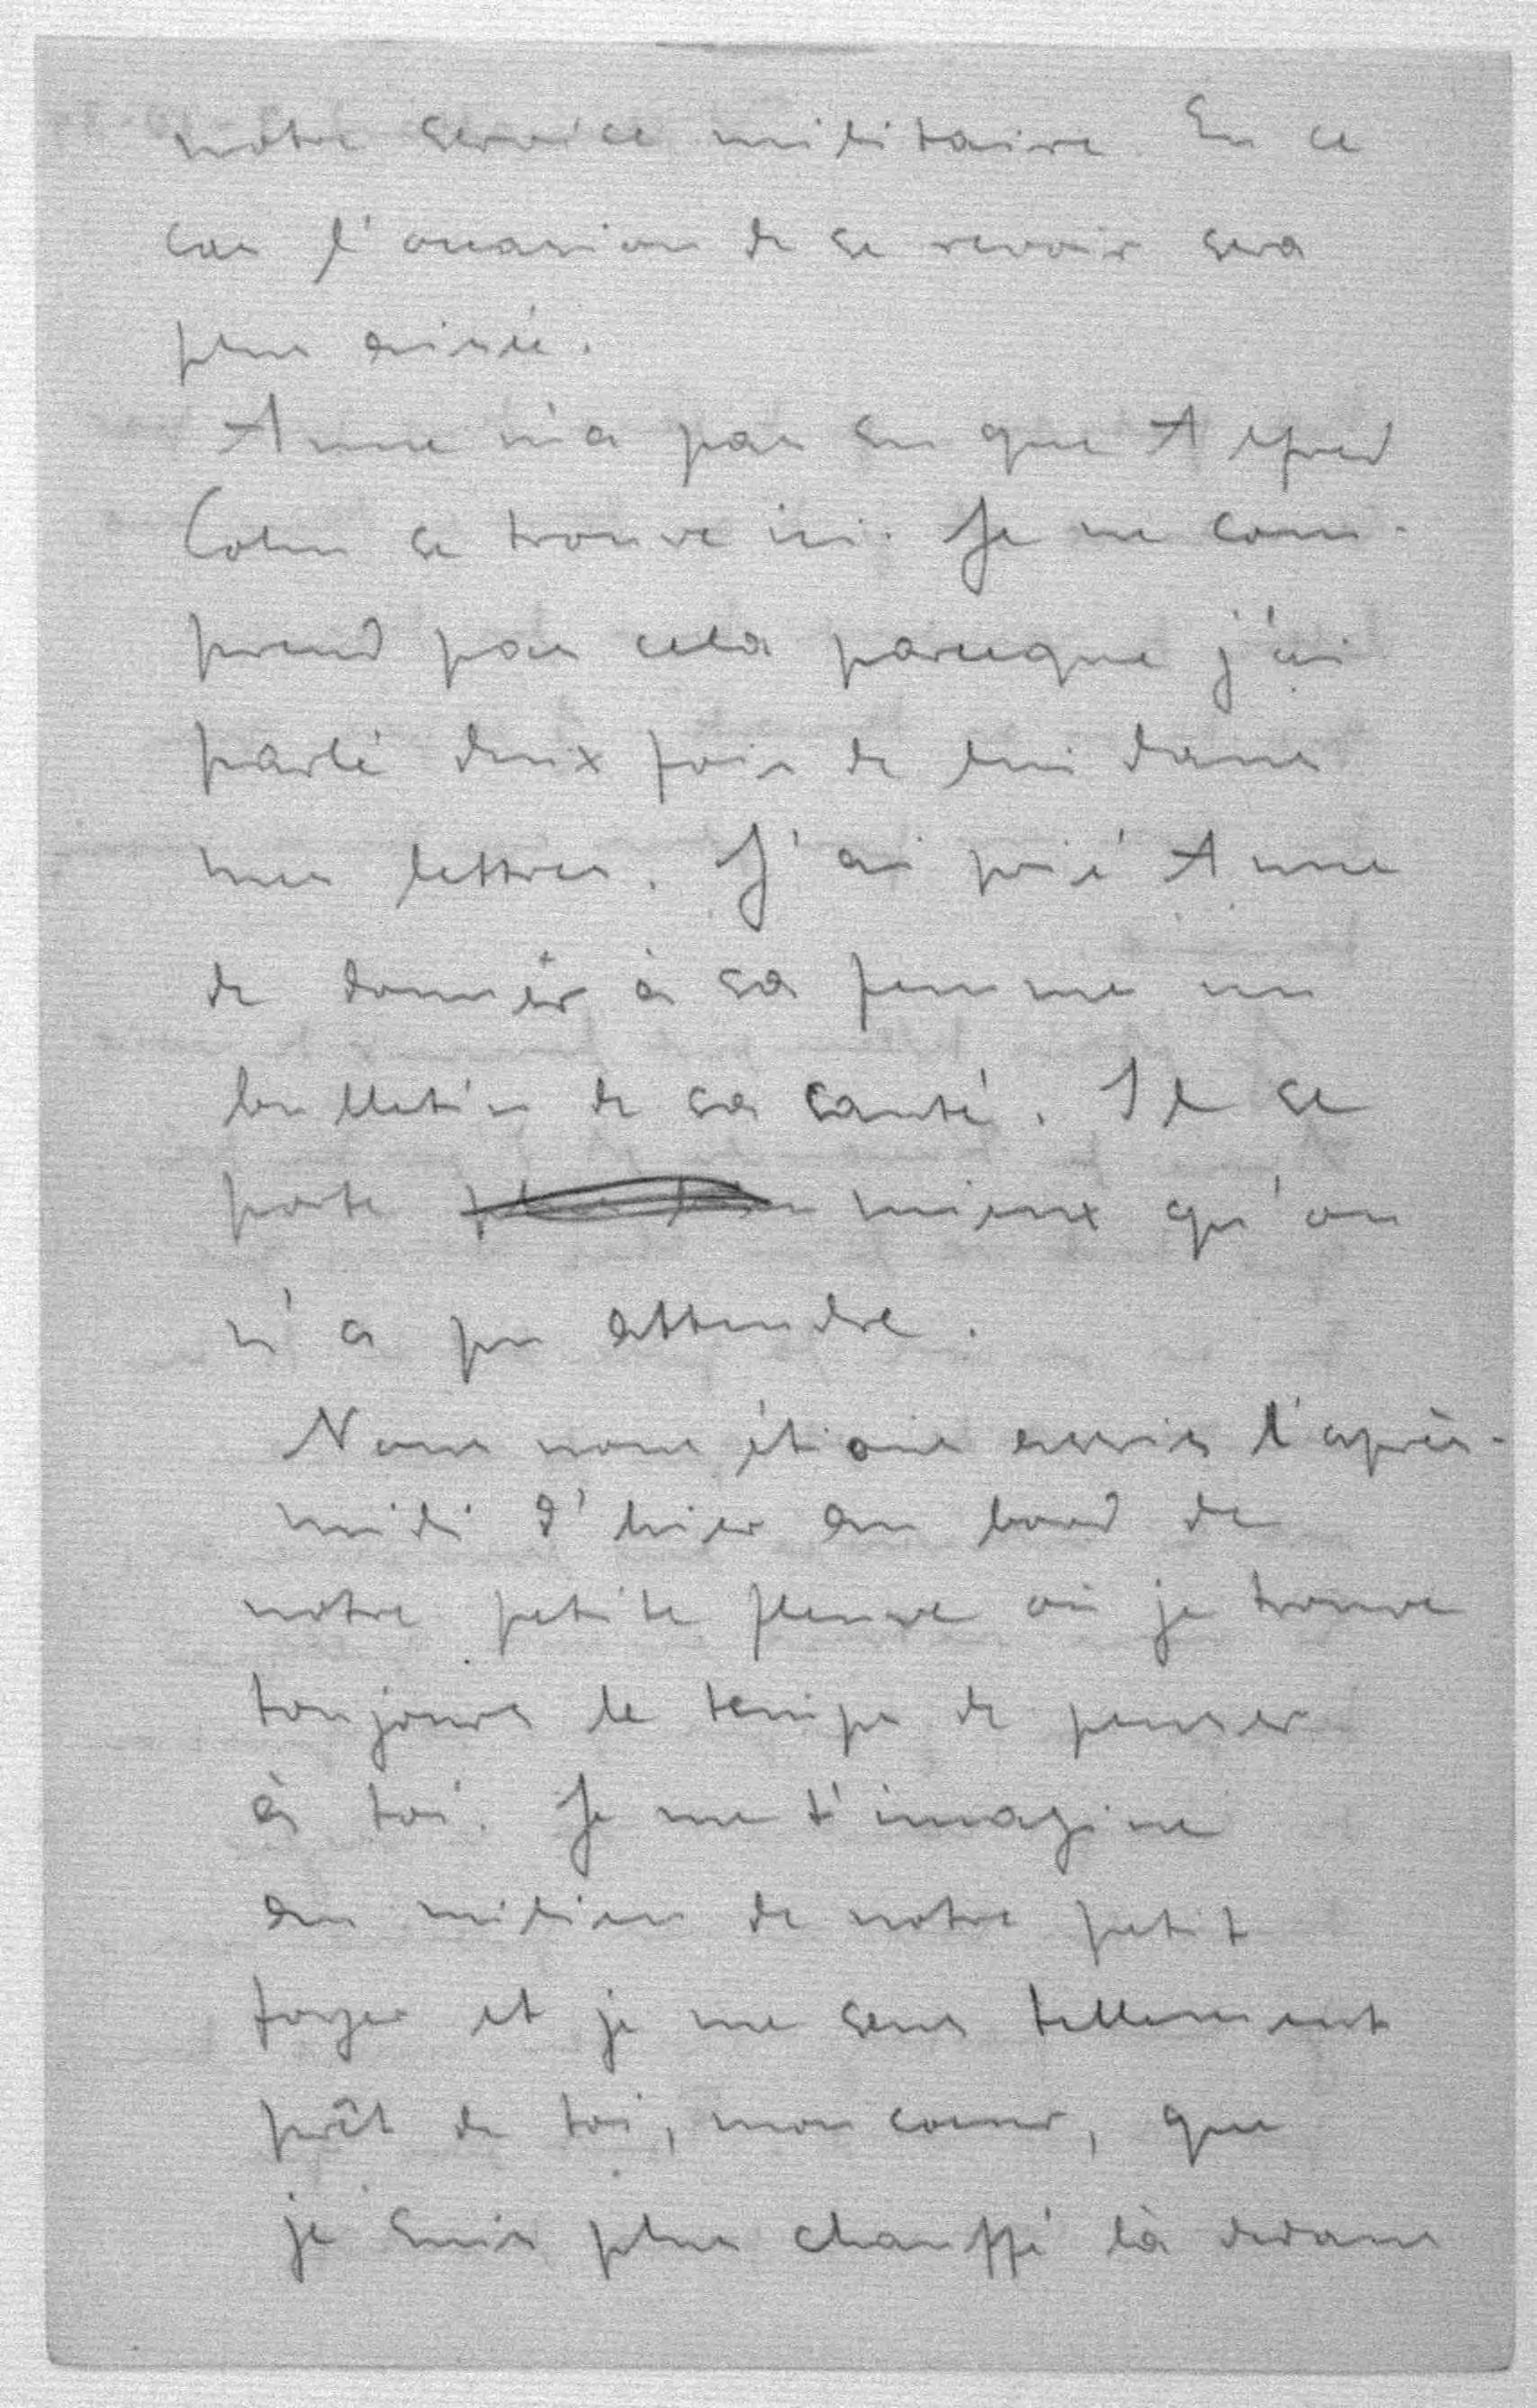 notre service militaire. En ce
cas l'occasion de se revoir sera
plus aisée.
Anne n'a pas su que Alfred
Cohn se trouve ici. Je ne com-
prend pas cela parceque j'ai
parlé deux fois de lui dans
mes lettres. J'ai prié Anne
de donner à sa femme un
bulletin de sa santé. Il se
porte mieux qu'on
n'a pu attendre.
Nous nous étions assis l'après-
midi d'hier au bord de
notre petite fleuve où je trouve
toujours le temps de penser
à toi. Je me t'imagine
au milieu de notre petit
foyer et je me sens tellement
prêt de toi, mon coeur, que
je suis plus chauffé là dedans